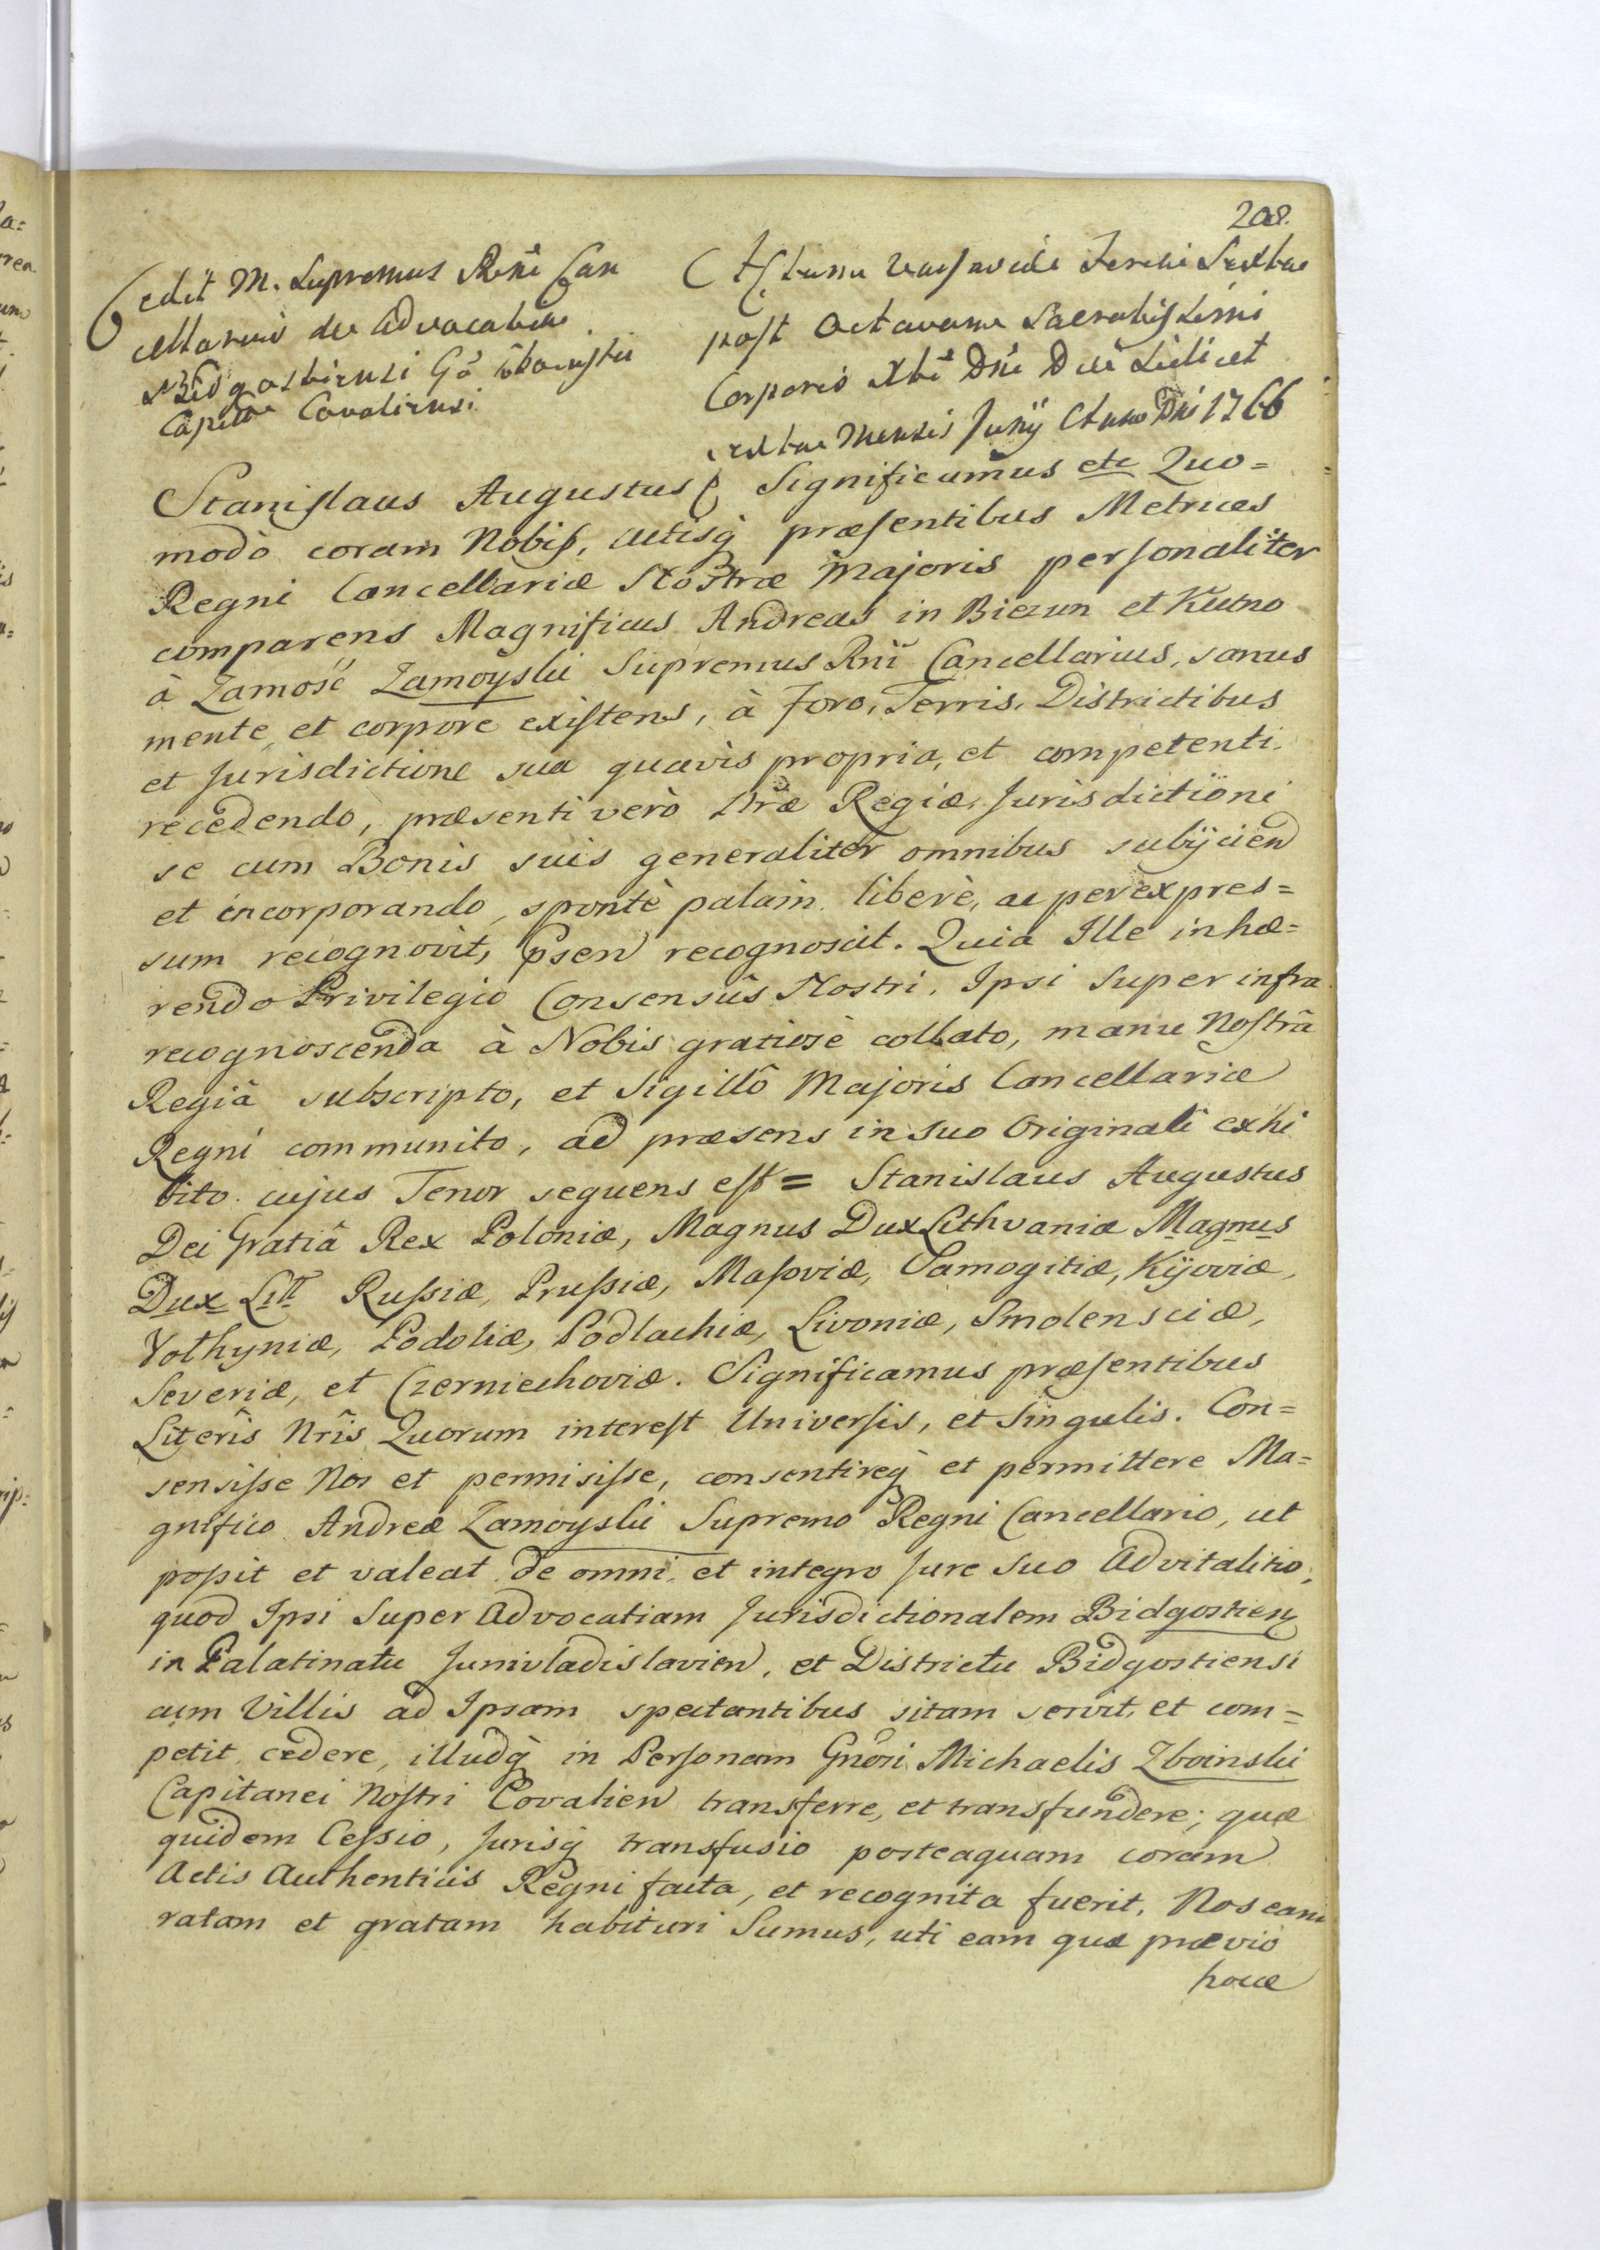 208.
Cedit M. Supremus Rñi Can
cellarius de Advocatia
Bidgostiensi Gō Zboinski
Capitō Covaliensi
Actum Varsaviæ Feria Sexta
post Octavam Sacratissimi
Corporis Xti Dñi Die scilicet
sexta Mensis Junij Anno Dñi 1766
Stanislaus Augustus Significamus etc Quo=
modò coram Nobis, actisq̀ præsentibus Metrices
Regni Cancellariæ Nostræ Majoris personaliter
comparens Magnificus Andreas in Biezun et Kutno
à Zamość Zamoyski Supremus Rñi Cancellarius, sanus
mente, et corpore existens, à Foro, Terris, Districtibus
et Jurisdictione sua quavis propria, et competenti
recedendo, præsenti verò Nræ Regiæ Jurisdictioni
se cum Bonis suis generaliter omnibus subijcien
et incorporando, spontè palam liberè, ac per expres=
sum recognovit, psen recognoscit. Quia Ille inhæ=
rendo Privilegio Consensûs Nostri, Ipsi super infra
recognoscenda à Nobis gratiosè collato, manu Nostrâ
Regiâ subscripto, et Sigillô Majoris Cancellariæ
Regni communito, ad præsens in suo Originali exhi
bito. cujus Tenor sequens est = Stanislaus Augustus
Dei Gratiâ Rex Poloniæ, Magnus Dux Lithvaniæ Magnus
Dux Litt Russiæ, Prussiæ, Masoviæ, Samogitiæ, Kijoviæ,
Volhyniæ, Podoliæ, Podlachiæ, Livoniæ, Smolensciæ,
Severiæ, et Czerniechoviæ. Significamus præsentibus
Literis Nris Quorum interest Universis, et Singulis. Con=
sensisse Nos et permisisse, consentireq̀ et permittere Ma=
gnifico Andreæ Zamoyski Supremo Regni Cancellario, ut
possit et valeat de omni, et integro Jure Suo Advitalitio,
quod Ipsi Super Advocatiam Jurisdictionalem Bidgostien
in Palatinatu Junivladislavien, et Districtu Bidgostiensi
cum Villis ad Ipsam spectantibus sitam servit, et com=
petit, cedere, illudq̀ in Personam Gnosi Michaelis Zboinski
Capitanei Nostri Covalien transferre, et transfundere; quæ
quidem Cessio, Jurisq̀ transfusio posteaquam coram
Actis Authenticis Regni facta, et recognita fuerit, Nos eam
ratam et gratam habituri Sumus, uti eam quæ prævio
hocce